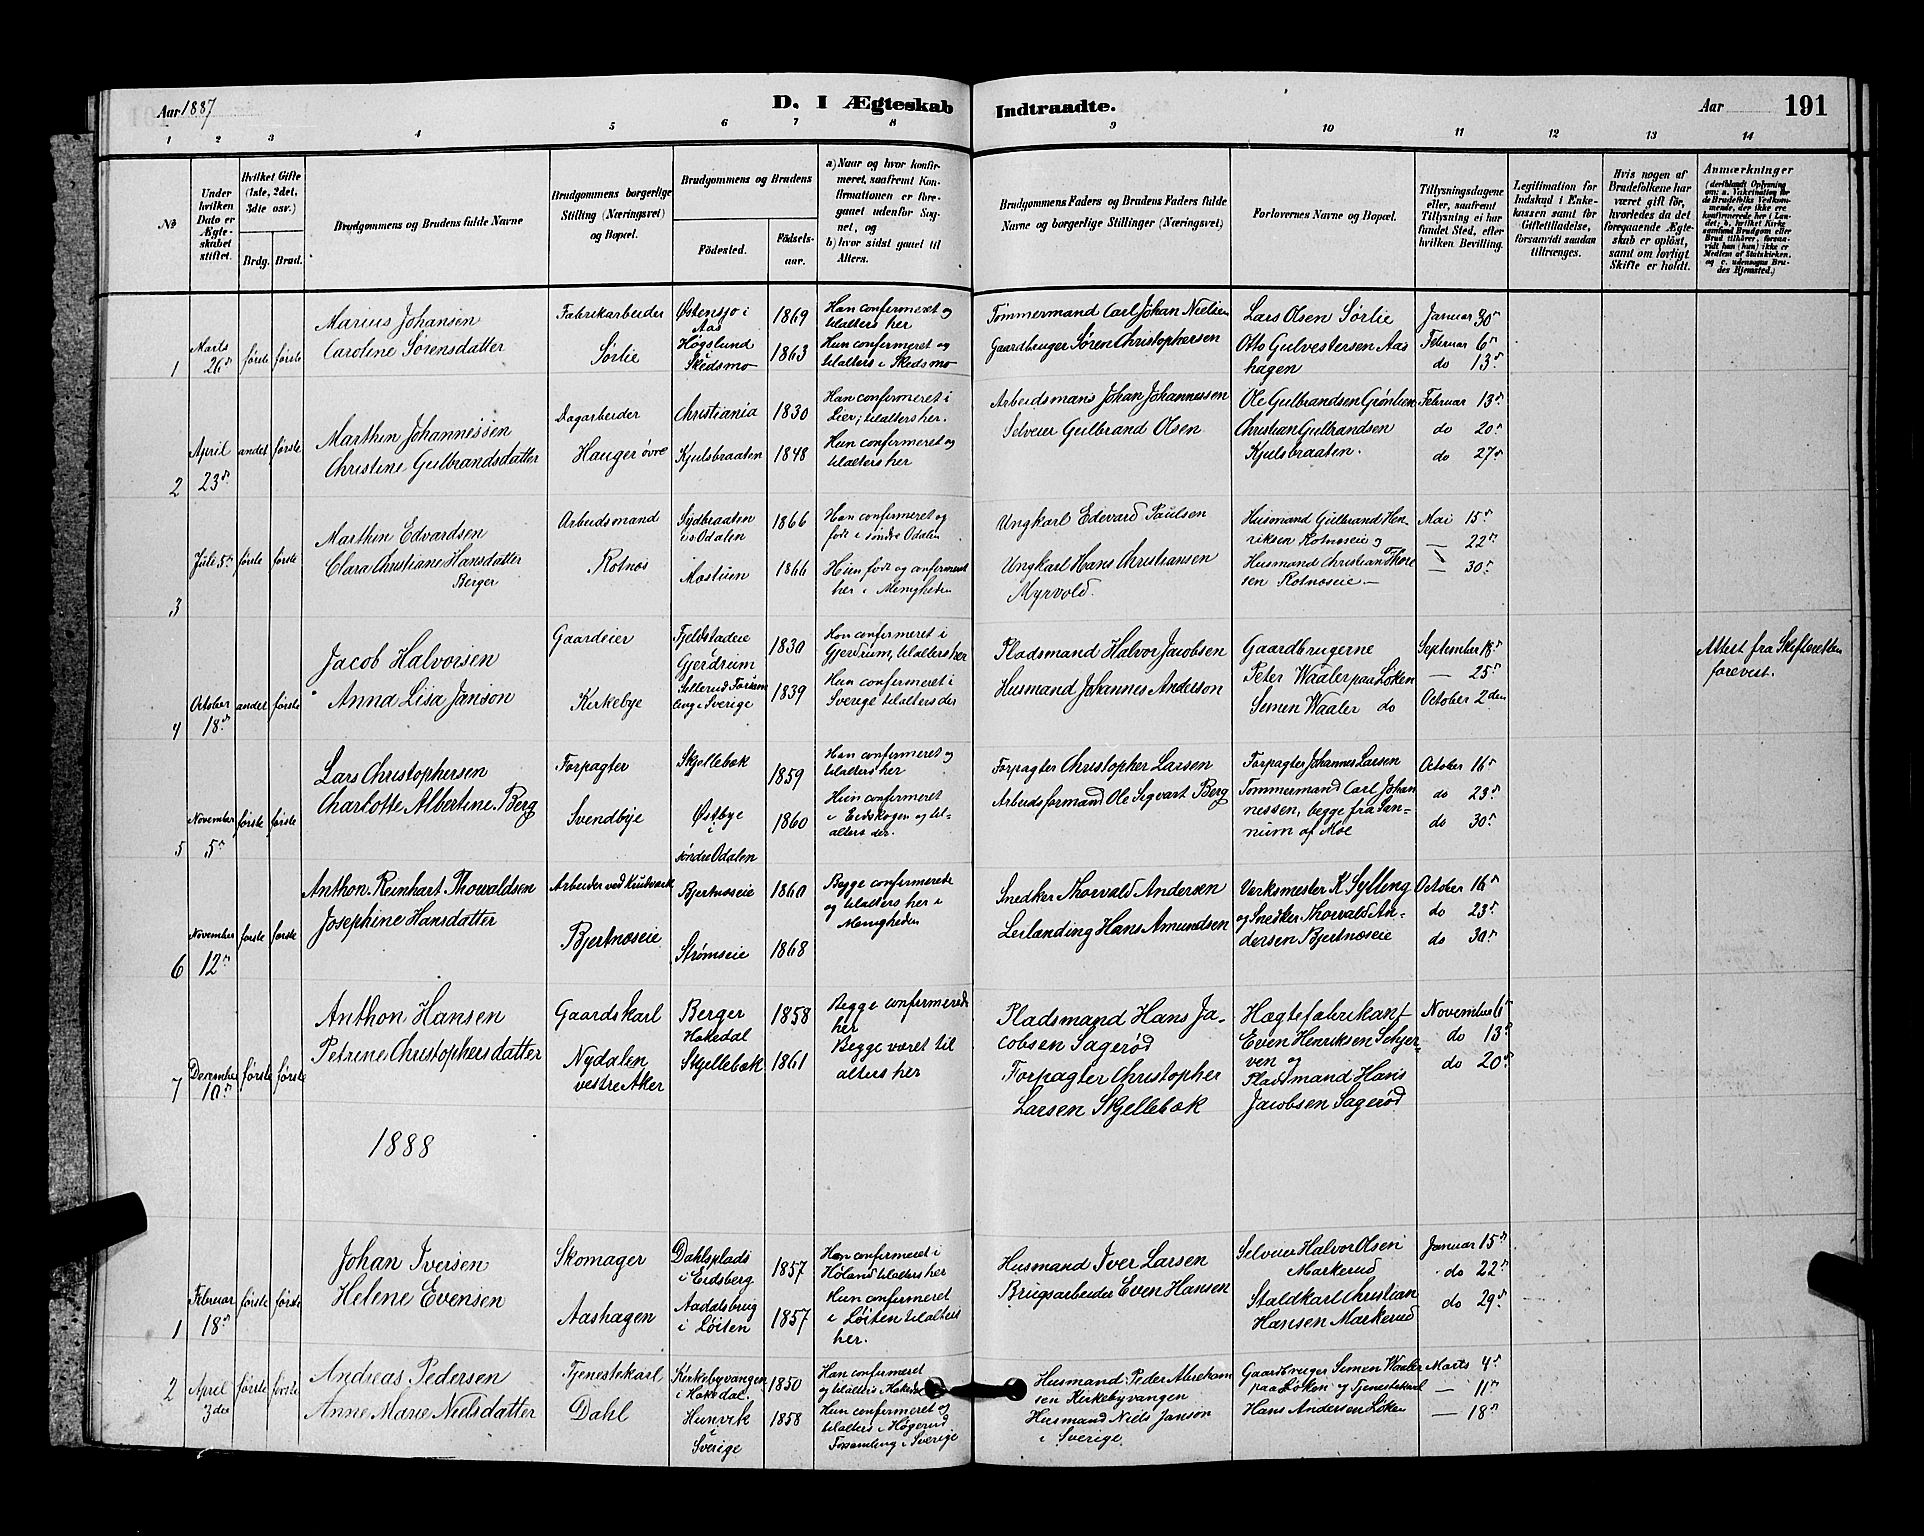 Aar 1887
D. I Ægteskab Indtraadte.
Aar 191
1 2 3 4 5 6 7 8 9 10 11 12 13 14
№
Under hvilken Dato er Ægteskabet stiftet.
Hvilket Gifte (1ste, 2det, 3dte osv.)
Brdg. Brud.
Brudgommens og Brudens fulde Navne
Brudgommens borgerlige Stilling (Næringsvei) og Bopæl.
Brudgommens og Brudens
Fødested.
Fødselsaar.
a) Naar og hvor konfirmeret, saafremt Konfirmationen er foregaaet udenfor Sognet, og
b) hvor sidst gaaet til Alters.
Brudgommens Faders og Brudens Faders fulde Navne og borgerlige Stillinger (Næringsvei)
Forlovernes Navne og Bopæl.
Tillysningsdagene eller, saafremt Tillysning ei har fundet Sted, efter hvilken Bevilling.
Legitimation for Indskud i Enkekassen samt for Giftetilladelse, forsaavidt saadan tiltrænges.
Hvis nogen af Brudefolkene har været gift før, hvorledes da det foregaaende Ægteskab er opløst, samt om lovligt Skifte er holdt.
Anmærkninger
(deriblandt Oplysning om: a. Vakcination for de Brudefolks Vedkommende, der ikke ere konfirmerede her i Landet; b. hvilket Kirkesamfund Brudgom eller Brud tilhører, forsaavidt han (hun) ikke er Medlem af Statskirken, og c. udensogns Brudes Hjemsted.)
1
Marts 26de
første første
Marius Johansen
Caroline Sørensdatter
Fabrikarbeider
Sørlie
Østensjø i Aas 1869
Høgslund i Skedsmo 1863
Han confirmeret og tilalters her
Hun confirmeret og tilalters i Skedsmo
Tømmermand Carl Johan Nielsen
Gaardbruger Søren Christophersen
Lars Olsen Sørlie
Otto Gulvestersen Aashagen
Januar 30te
Februar 6te
do 13de
2
April 23de
andet første
Marthin Johannessen
Christine Gulbrandsdatter
Dagarbeider
Hauger øvre
Christiania 1830
Kjulsbraaten 1848
Han confirmeret i Lier; tilalters her.
Hun confirmeret og tilalters her
Arbeidsmand Johan Johannessen
Selveier Gulbrand Olsen
Ole Gulbrandsen Grønlien
Christian Gulbrandsen Kjulsbraaten.
Februar 13de
do 20de
do 27de
3
Juli 5te
første første
Marthin Edvardsen
Clara Christiane Hansdatter
Berger
Arbeidsmand
Rotnes
Sydbraaten i s Odalen 1866
Mostuen 1866
Han confirmeret og født i søndre Odalen
Hun født og confirmeret her i Menigheden
Ungkarl Edevard Paulsen
Ungkarl Hans Christiansen
Myrvold.
Husmand Gulbrand Henriksen Rotnæseie og
Husmand Christian Thoresen Rotnæseie —
Mai 15de
— 22de
— 30te
4
October 18de
andet første
Jacob Halvorsen
Anna Lisa Janson
Gaardeier
Kirkebye
Fjeldstadeie Gjerdrum 1830
Sillerud Forsamling i Sverige 1839
Han confirmeret i Gjerdrum, tilalters her
Hun confirmeret i Sverige tilalters der
Pladsmand Halvor Jacobsen
Husmand Johannes Anderson
Gaardbrugerne
Peter Waaler paa Løken
Simen Waaler do
September 18de
— 25de
October 2den
Attest fra Skifteretten forevist.
5
November 5te
første første
Lars Christophersen
Charlotte Albertine Berg
Forpagter
Svendbye
Skjellebæk 1859
Østbye i søndre Odalen 1860
Han confirmeret og tilalters her
Hun confirmeret i Eidskogen og tilalters der.
Forpagter Christopher Larsen
Arbeidsformand Ole Sigvart Berg
Forpagter Johannes Larsen
Tømmermand Carl Johannessen, begge fra Sannum af Moe
October 16de
do 23de
do 30te
6
November 12te
første første
Anthon Reinhart Thorvaldsen
Josephine Hansdatter
Arbeider ved Krudtværk
Bjertnæseie
Bjertnæseie 1860
Strømseie 1868
Begge confirmerede og tilalters her i Menigheden
Snedker Thorvald Andersen
Lerlænding Hans Amundsen
Værksmester K Sylling
og Snedker Thorvald Andersen Bjertnæseie
October 16de
do 23de
do 30te
7
December 10de
første første
Anthon Hansen
Petrine Christophersdatter
Gaardskarl
Nydalen
vestre Aker
Berger Hakedal 1858
Skjellebæk 1861
Begge confirmerede her
Begge været til alters her
Pladsmand Hans Jacobsen Sagerød
Forpagter Christopher Larsen Skjellebæk
Hægtefabrikant
Even Henriksen Schjerven og
Pladsmand Hans Jacobsen Sagerød
November 6te
do 13de
do 20de
1888
1
Februar 18de
første første
Johan Iversen
Helene Evensen
Skomager
Aashagen
Dahlsplads i Eidsberg 1857
Aadalsbrug i Løiten 1857
Han confirmeret i Høland tilalters her
Hun confirmeret i Løiten tilalters her.
Husmand Iver Larsen
Brugsarbeider Even Hansen
Selveier Halvor Olsen Markerud
Staldkarl Christian Hansen Markerud
Januar 15de
do 22de
do 29de
2
April 3die
første første
Andreas Pedersen
Anne Marie Nielsdatter
Tjenestekarl
Dahl
Kirkebyvangen i Hakedal. 1850
Hunvik i Sverige 1858
Han confirmeret og tilalters i Hakedal
Hun confirmeret og tilalters i Høgerud Forsamling i Sverige
Husmand Peder Abrahamsen Kirkebyvangen
Husmand Niels Janson i Sverige
Gaardbruger Simen Waaler paa Løken og Tjenestekarl
Hans Andersen Løken
Marts 4de
— 11te
— 18de